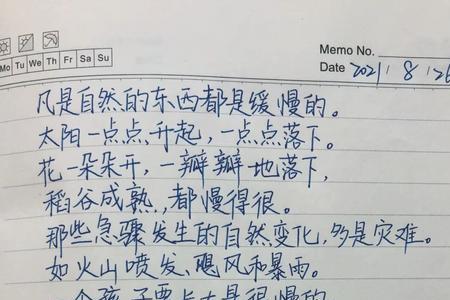 Mo Tu We Th Fr Sa Su
Memo No.
Date 2021 / 8 / 26
凡是自然的东西都是缓慢的。
太阳一点点升起，一点点落下。
花一朵朵开，一瓣瓣地落下，
稻谷成熟，都慢得很。
那些急骤发生的自然变化，多是灾难。
如火山喷发、飓风和暴雨。
一个孩子要
是很慢的